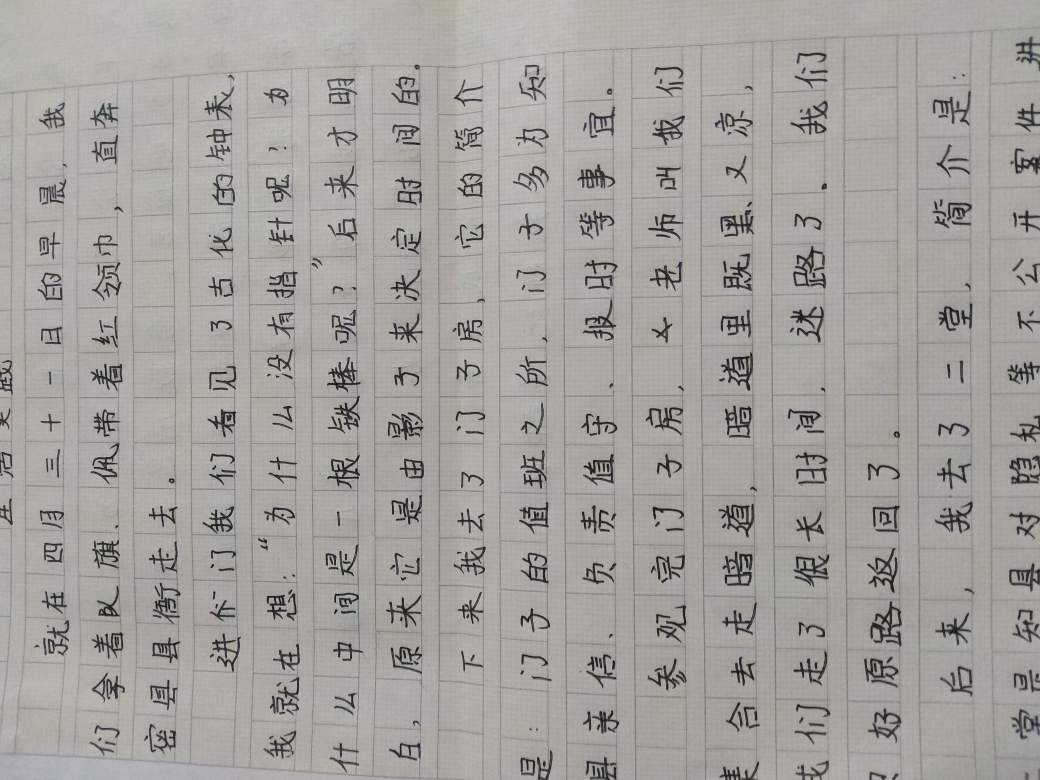 生活实践
就在四月三十一日的早晨，我
们拿着队旗、佩带着红领巾，直奔
密县县衙走去。
进俯门我们看见了古化的钟表，
我就在想：“为什么没有指针呢？为
什么中间是一根铁棒呢？”后来才明
白，原来它是由影子来决定时间的。
下来我去了门子房，它的简介
是：门子的值班之所，门子多为知
县亲信、负责值守、报时等事宜。
参观完门子房，女老师叫我们
集合去走暗道，暗道里既黑又凉，
我们走了很长时间，迷路了．我们
好原路返回了。
后来，我去了二堂，简介是：
堂是知县对隐私等不公开案件进